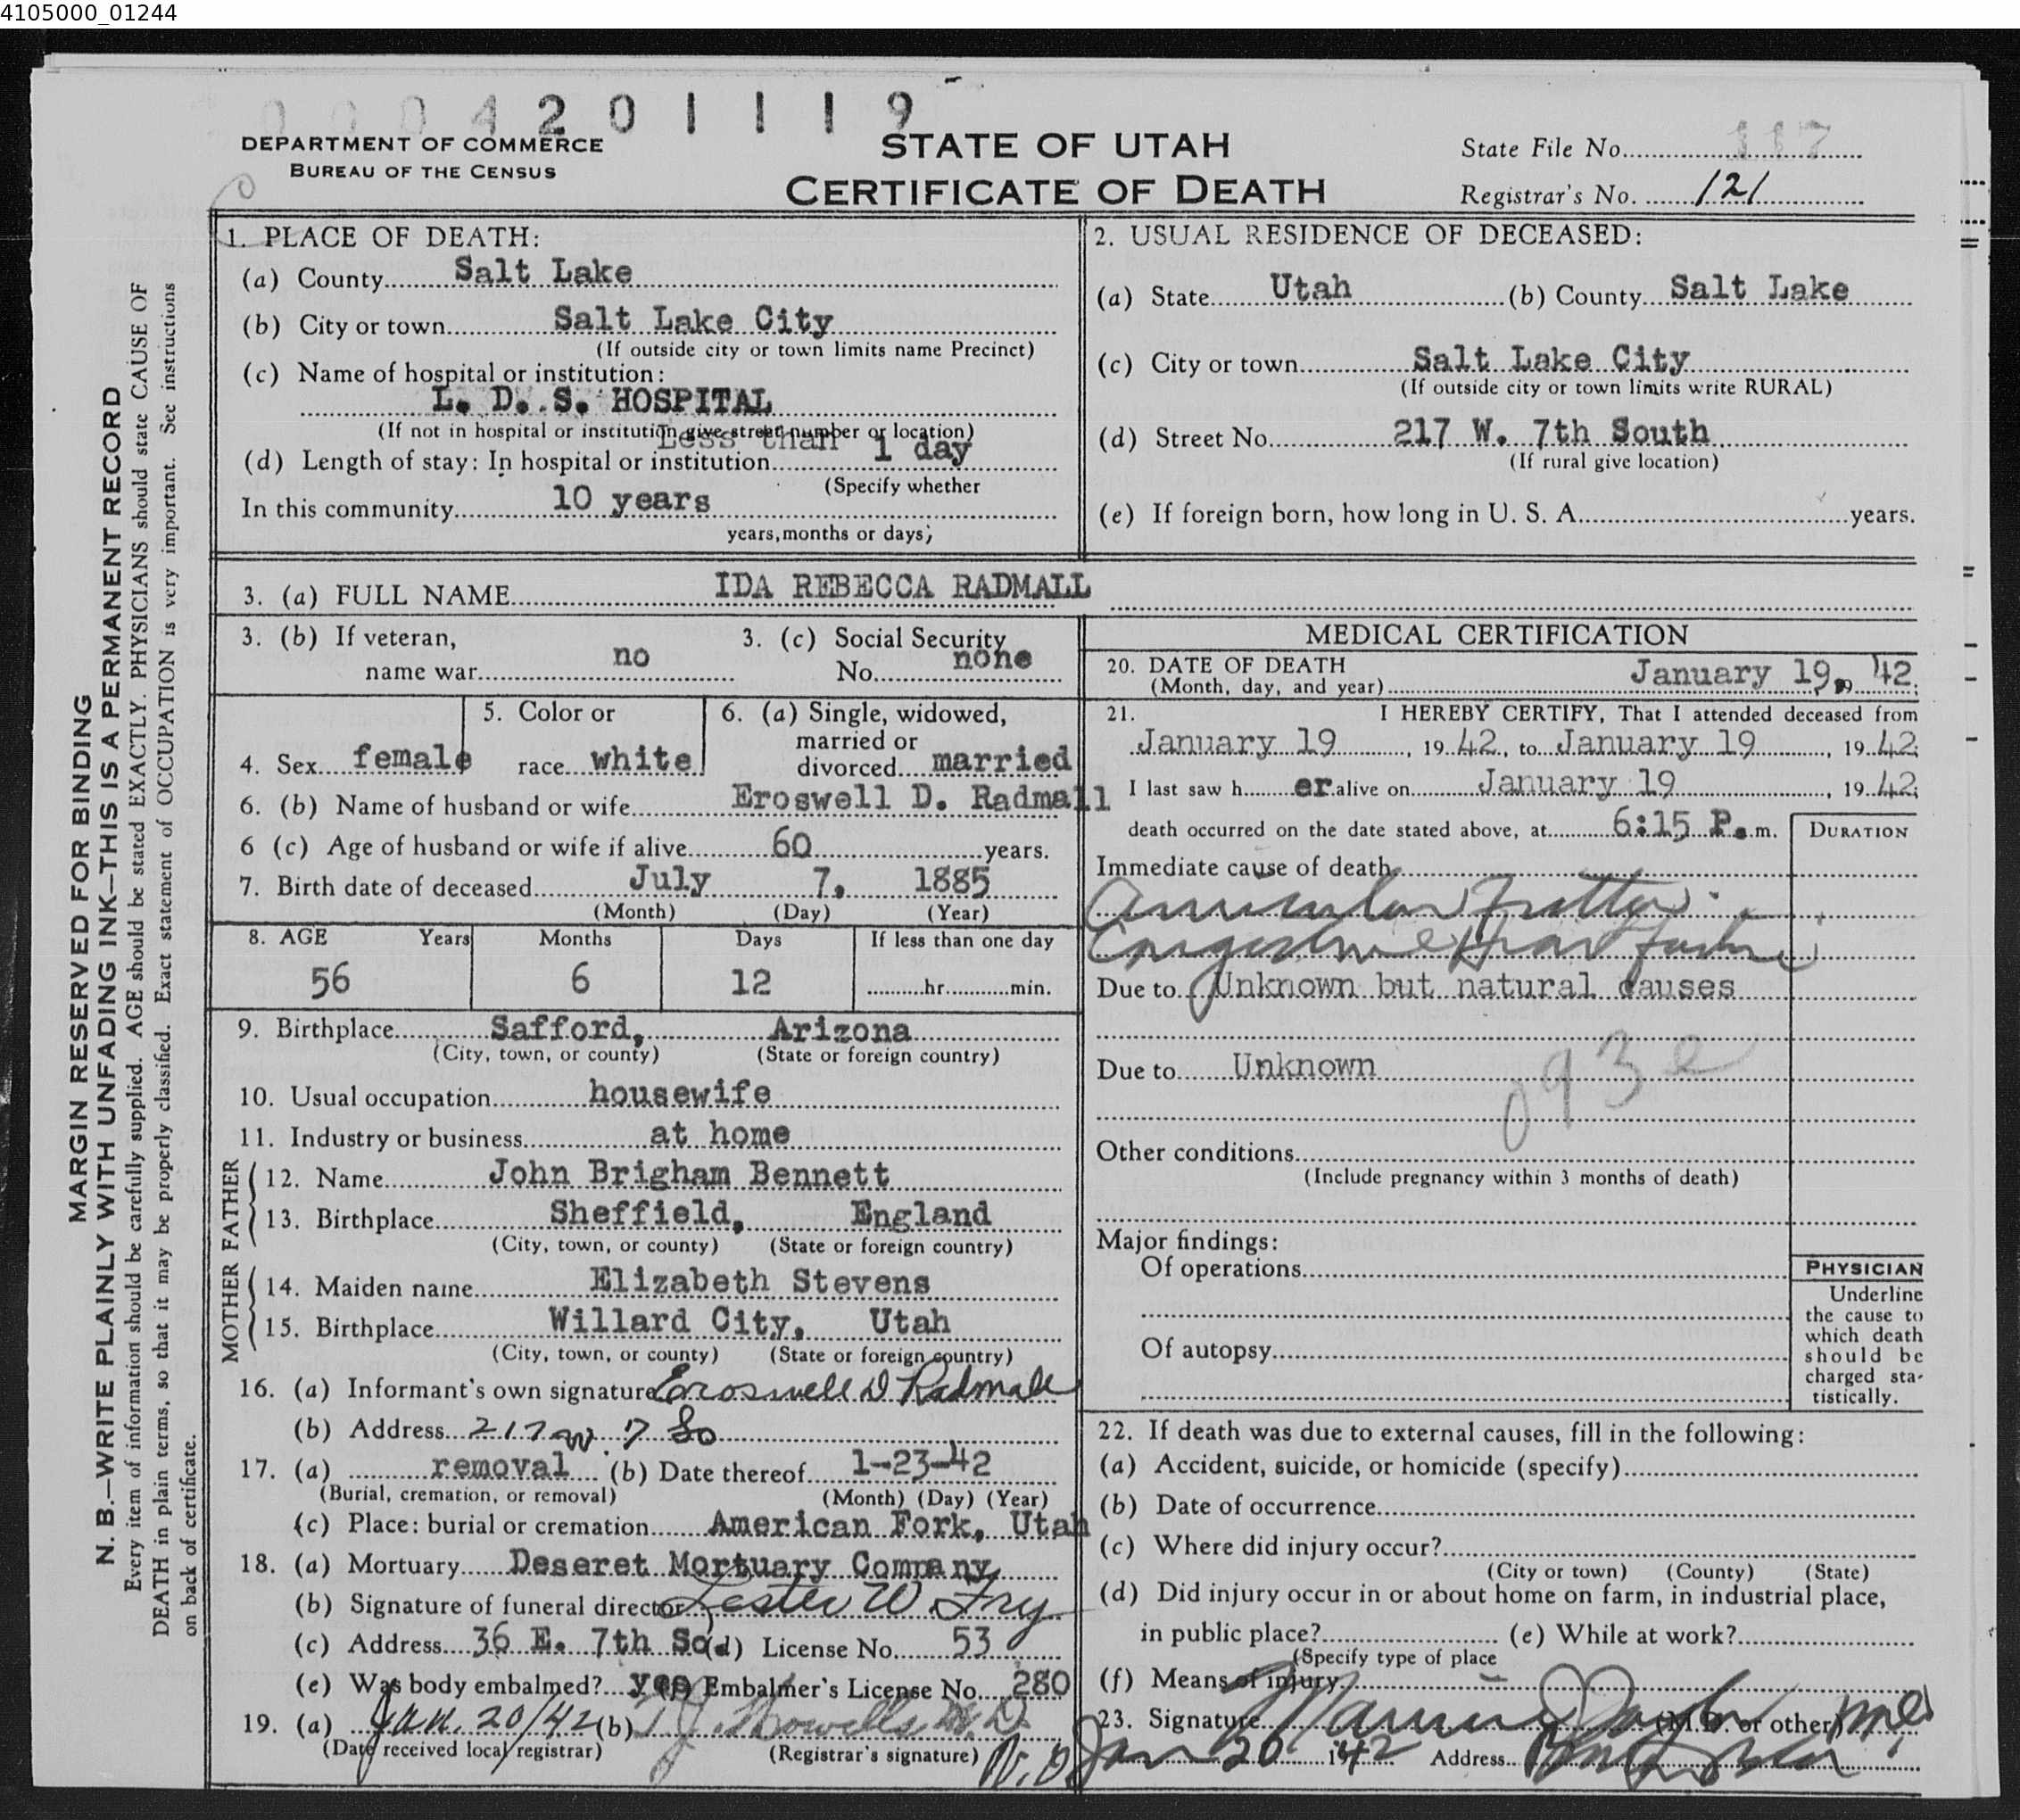 4105000_01244
0004201119
DEPARTMENT OF COMMERCE
BUREAU OF THE CENSUS
STATE OF UTAH
CERTIFICATE OF DEATH
State File No. 117
Registrar's No. 121
MARGIN RESERVED FOR BINDING
N. B.—WRITE PLAINLY WITH UNFADING INK—THIS IS A PERMANENT RECORD
Every item of information should be carefully supplied. AGE should be stated EXACTLY. PHYSICIANS should state CAUSE OF
DEATH in plain terms, so that it may be properly classified. Exact statement of OCCUPATION is very important. See instructions
on back of certificate.
1. PLACE OF DEATH:
(a) County Salt Lake
(b) City or town Salt Lake City
(If outside city or town limits name Precinct)
(c) Name of hospital or institution:
L. D. S. HOSPITAL
(If not in hospital or institution give street number or location)
Less than 1 day
(d) Length of stay: In hospital or institution
(Specify whether
In this community 10 years
years, months or days;
2. USUAL RESIDENCE OF DECEASED:
(a) State Utah (b) County Salt Lake
(c) City or town Salt Lake City
(If outside city or town limits write RURAL)
(d) Street No. 217 W. 7th South
(If rural give location)
(e) If foreign born, how long in U. S. A. years.
3. (a) FULL NAME IDA REBECCA RADMALL
3. (b) If veteran,
name war no
3. (c) Social Security
No. none
4. Sex female
5. Color or
race white
6. (a) Single, widowed,
married or
divorced married
6. (b) Name of husband or wife Eroswell D. Radmall
6 (c) Age of husband or wife if alive 60 years.
7. Birth date of deceased July 7, 1885
(Month) (Day) (Year)
8. AGE Years Months Days If less than one day
56 6 12 hr. min.
9. Birthplace Safford, Arizona
(City, town, or county) (State or foreign country)
10. Usual occupation housewife
11. Industry or business at home
FATHER
12. Name John Brigham Bennett
13. Birthplace Sheffield, England
(City, town, or county) (State or foreign country)
MOTHER
14. Maiden name Elizabeth Stevens
15. Birthplace Willard City, Utah
(City, town, or county) (State or foreign country)
16. (a) Informant's own signature Eroswell D Radmall
(b) Address 217 W. 7 So
17. (a) removal (b) Date thereof 1-23-42
(Burial, cremation, or removal) (Month) (Day) (Year)
(c) Place: burial or cremation American Fork, Utah
18. (a) Mortuary Deseret Mortuary Company
(b) Signature of funeral director Lester W. Fry
(c) Address 36 E. 7th So (d) License No. 53
(e) Was body embalmed? yes (f) Embalmer's License No. 280
19. (a) Jan. 20/42 (b) T. J. Howells M.D.
(Date received local registrar) (Registrar's signature)
MEDICAL CERTIFICATION
20. DATE OF DEATH
(Month, day, and year) January 19, 19 42
21. I HEREBY CERTIFY, That I attended deceased from
January 19, 19 42, to January 19, 19 42;
I last saw h er alive on January 19, 19 42;
death occurred on the date stated above, at 6:15 P.m.
DURATION
Immediate cause of death
Auricular Flutter
Congestive Heart failure
Due to Unknown but natural causes
Due to Unknown
093e
Other conditions
(Include pregnancy within 3 months of death)
Major findings:
Of operations
Of autopsy
PHYSICIAN
Underline
the cause to
which death
should be
charged sta-
tistically.
22. If death was due to external causes, fill in the following:
(a) Accident, suicide, or homicide (specify)
(b) Date of occurrence
(c) Where did injury occur?
(City or town) (County) (State)
(d) Did injury occur in or about home on farm, in industrial place,
in public place? (e) While at work?
(Specify type of place
(f) Means of injury
23. Signature (M.D. or other)
Jan 20 1942 Address